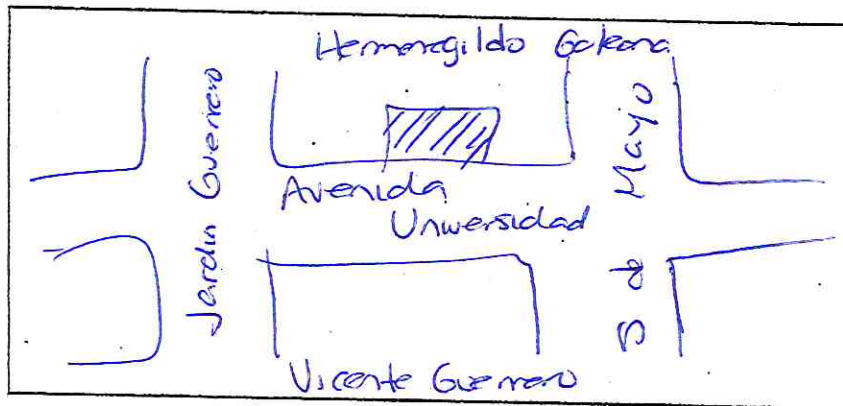 Hermenegildo Galeana
Jardin Guerrero
Avenida
Universidad
5 de Mayo
Vicente Guerrero